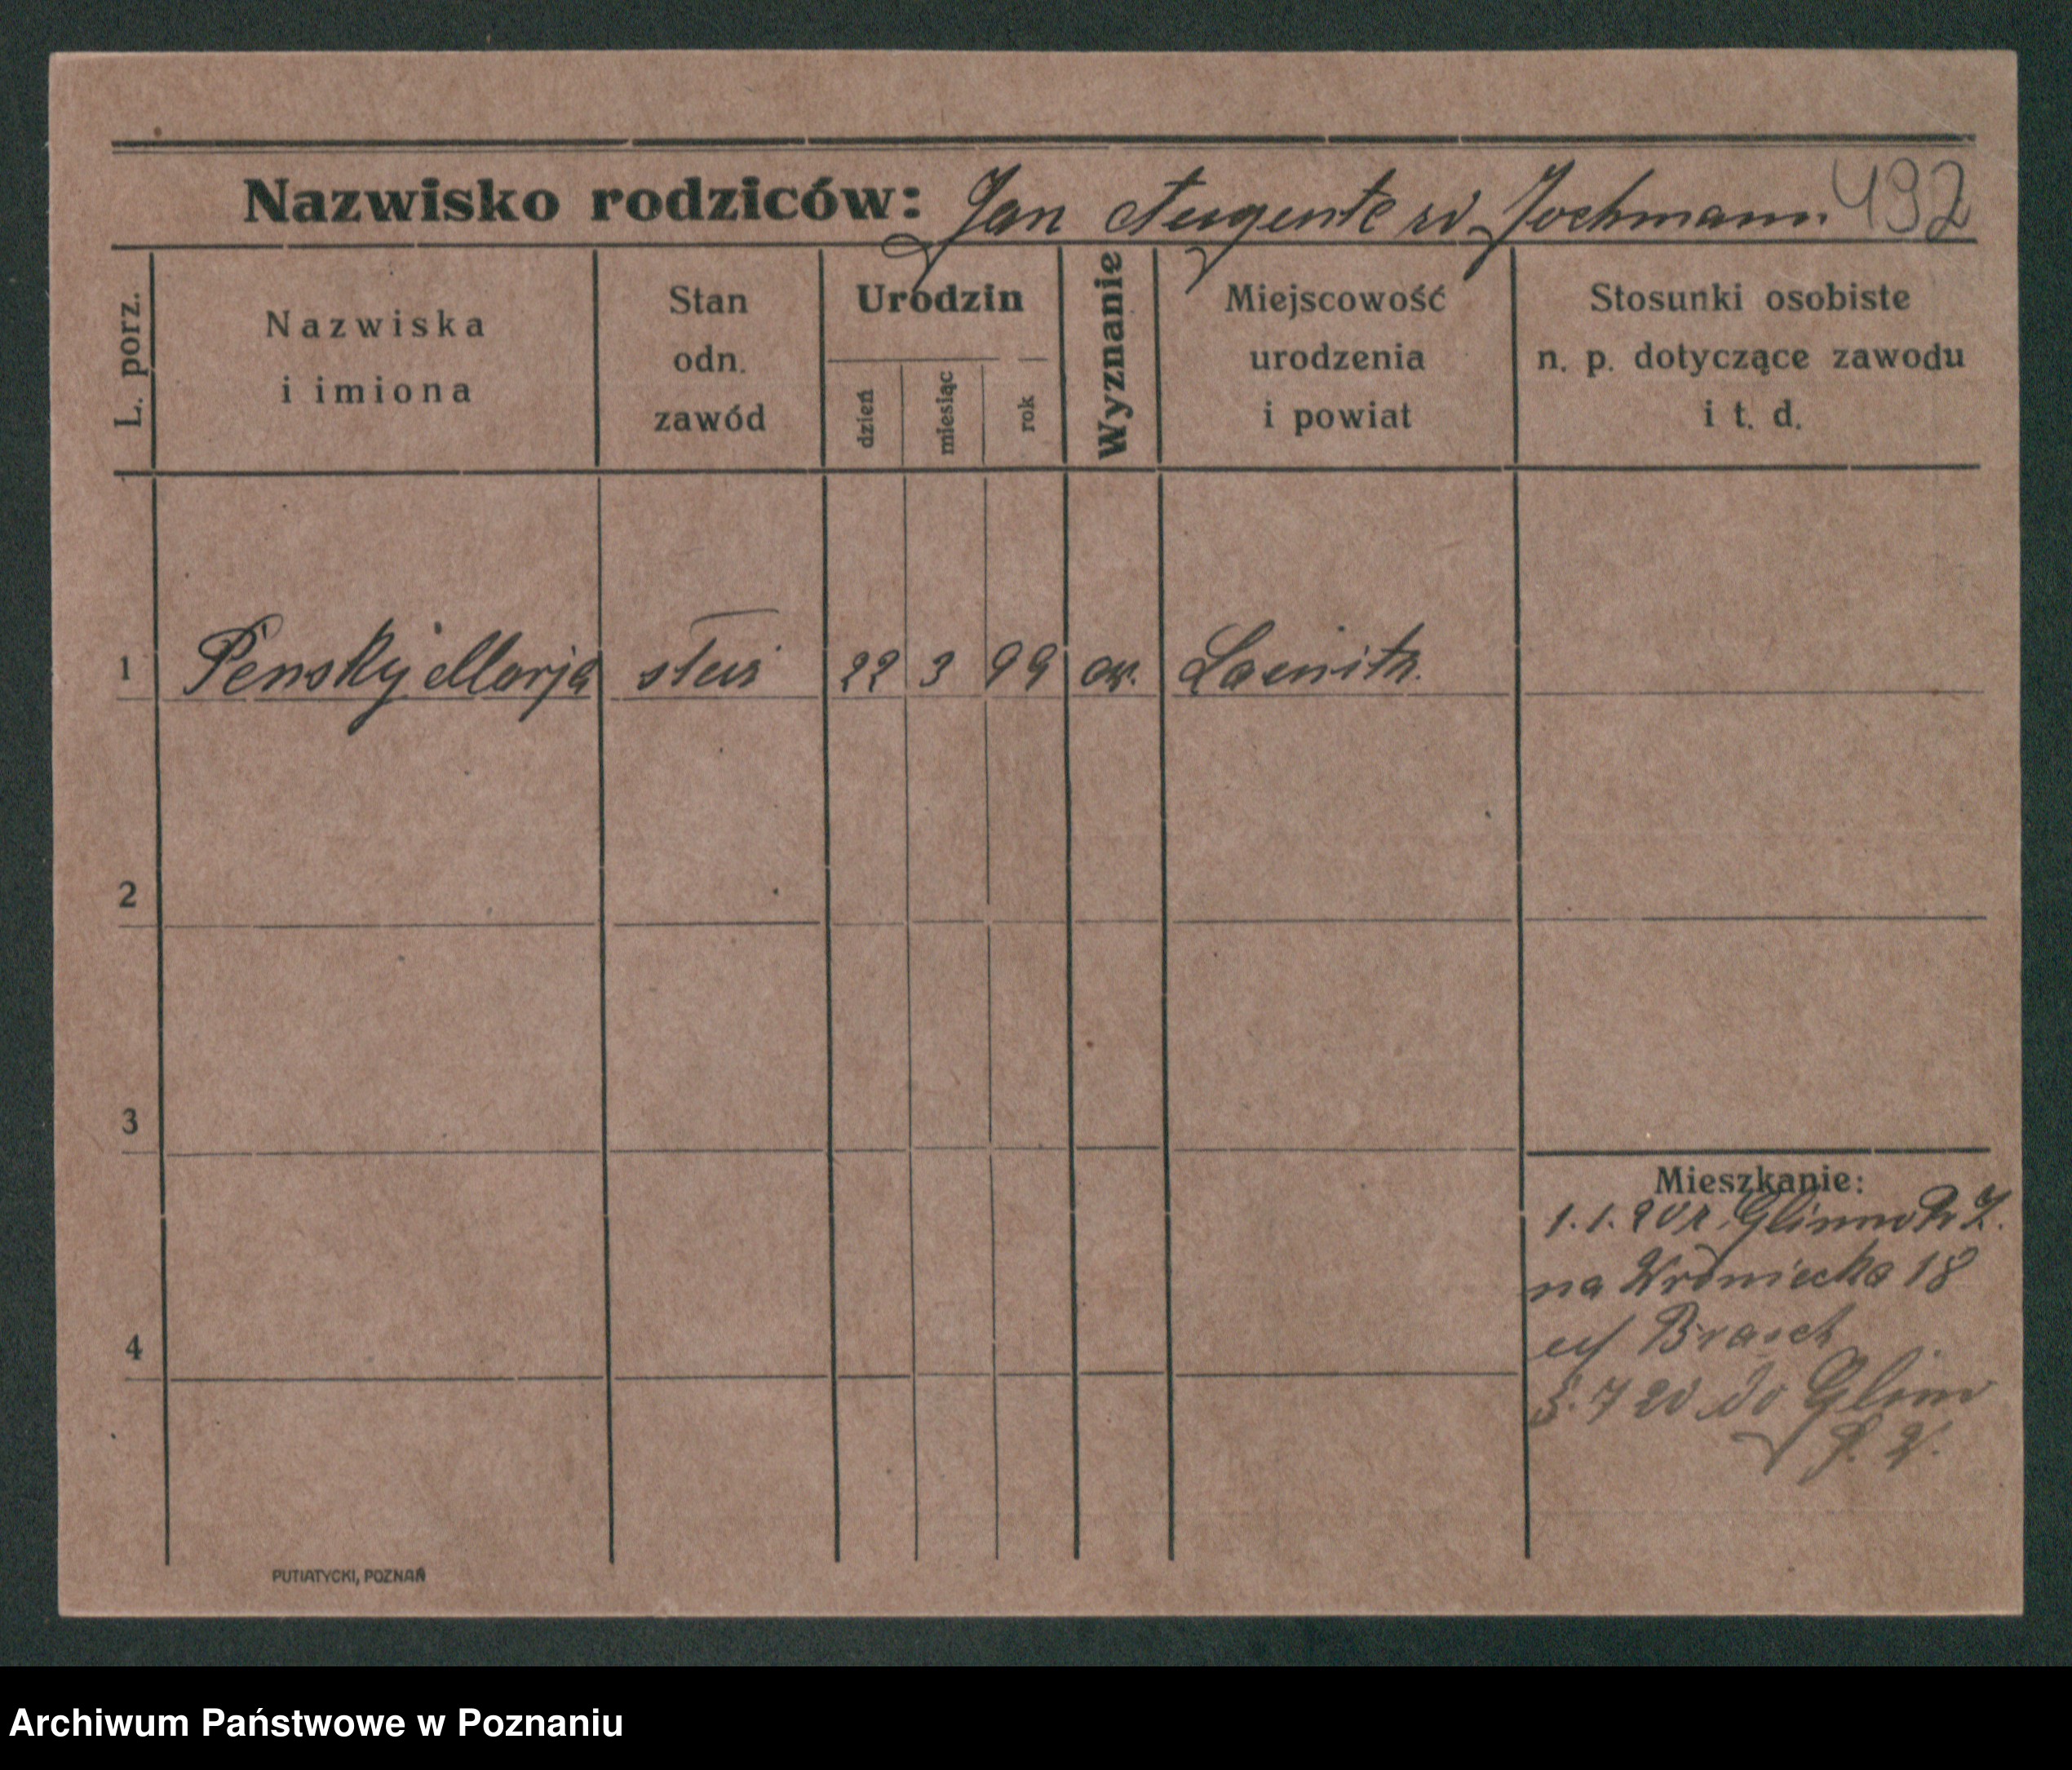 Nazwisko rodziców: Jan Augente rd Jochmann. 492
L. porz.
Nazwiska
i imiona
Stan
odn.
zawód
Urodzin
dzień
miesiąc
rok
Wyznanie
Miejscowość
urodzenia
i powiat
Stosunki osobiste
n. p. dotyczące zawodu
i t. d.
1 Pensky Marja 22 3 99 ew.
2
3
4
Mieszkanie:
1.1.20 z
na Wroniecka 18
Brasch
7 20 do
PUTIATYCKI, POZNAŃ
Archiwum Państwowe w Poznaniu